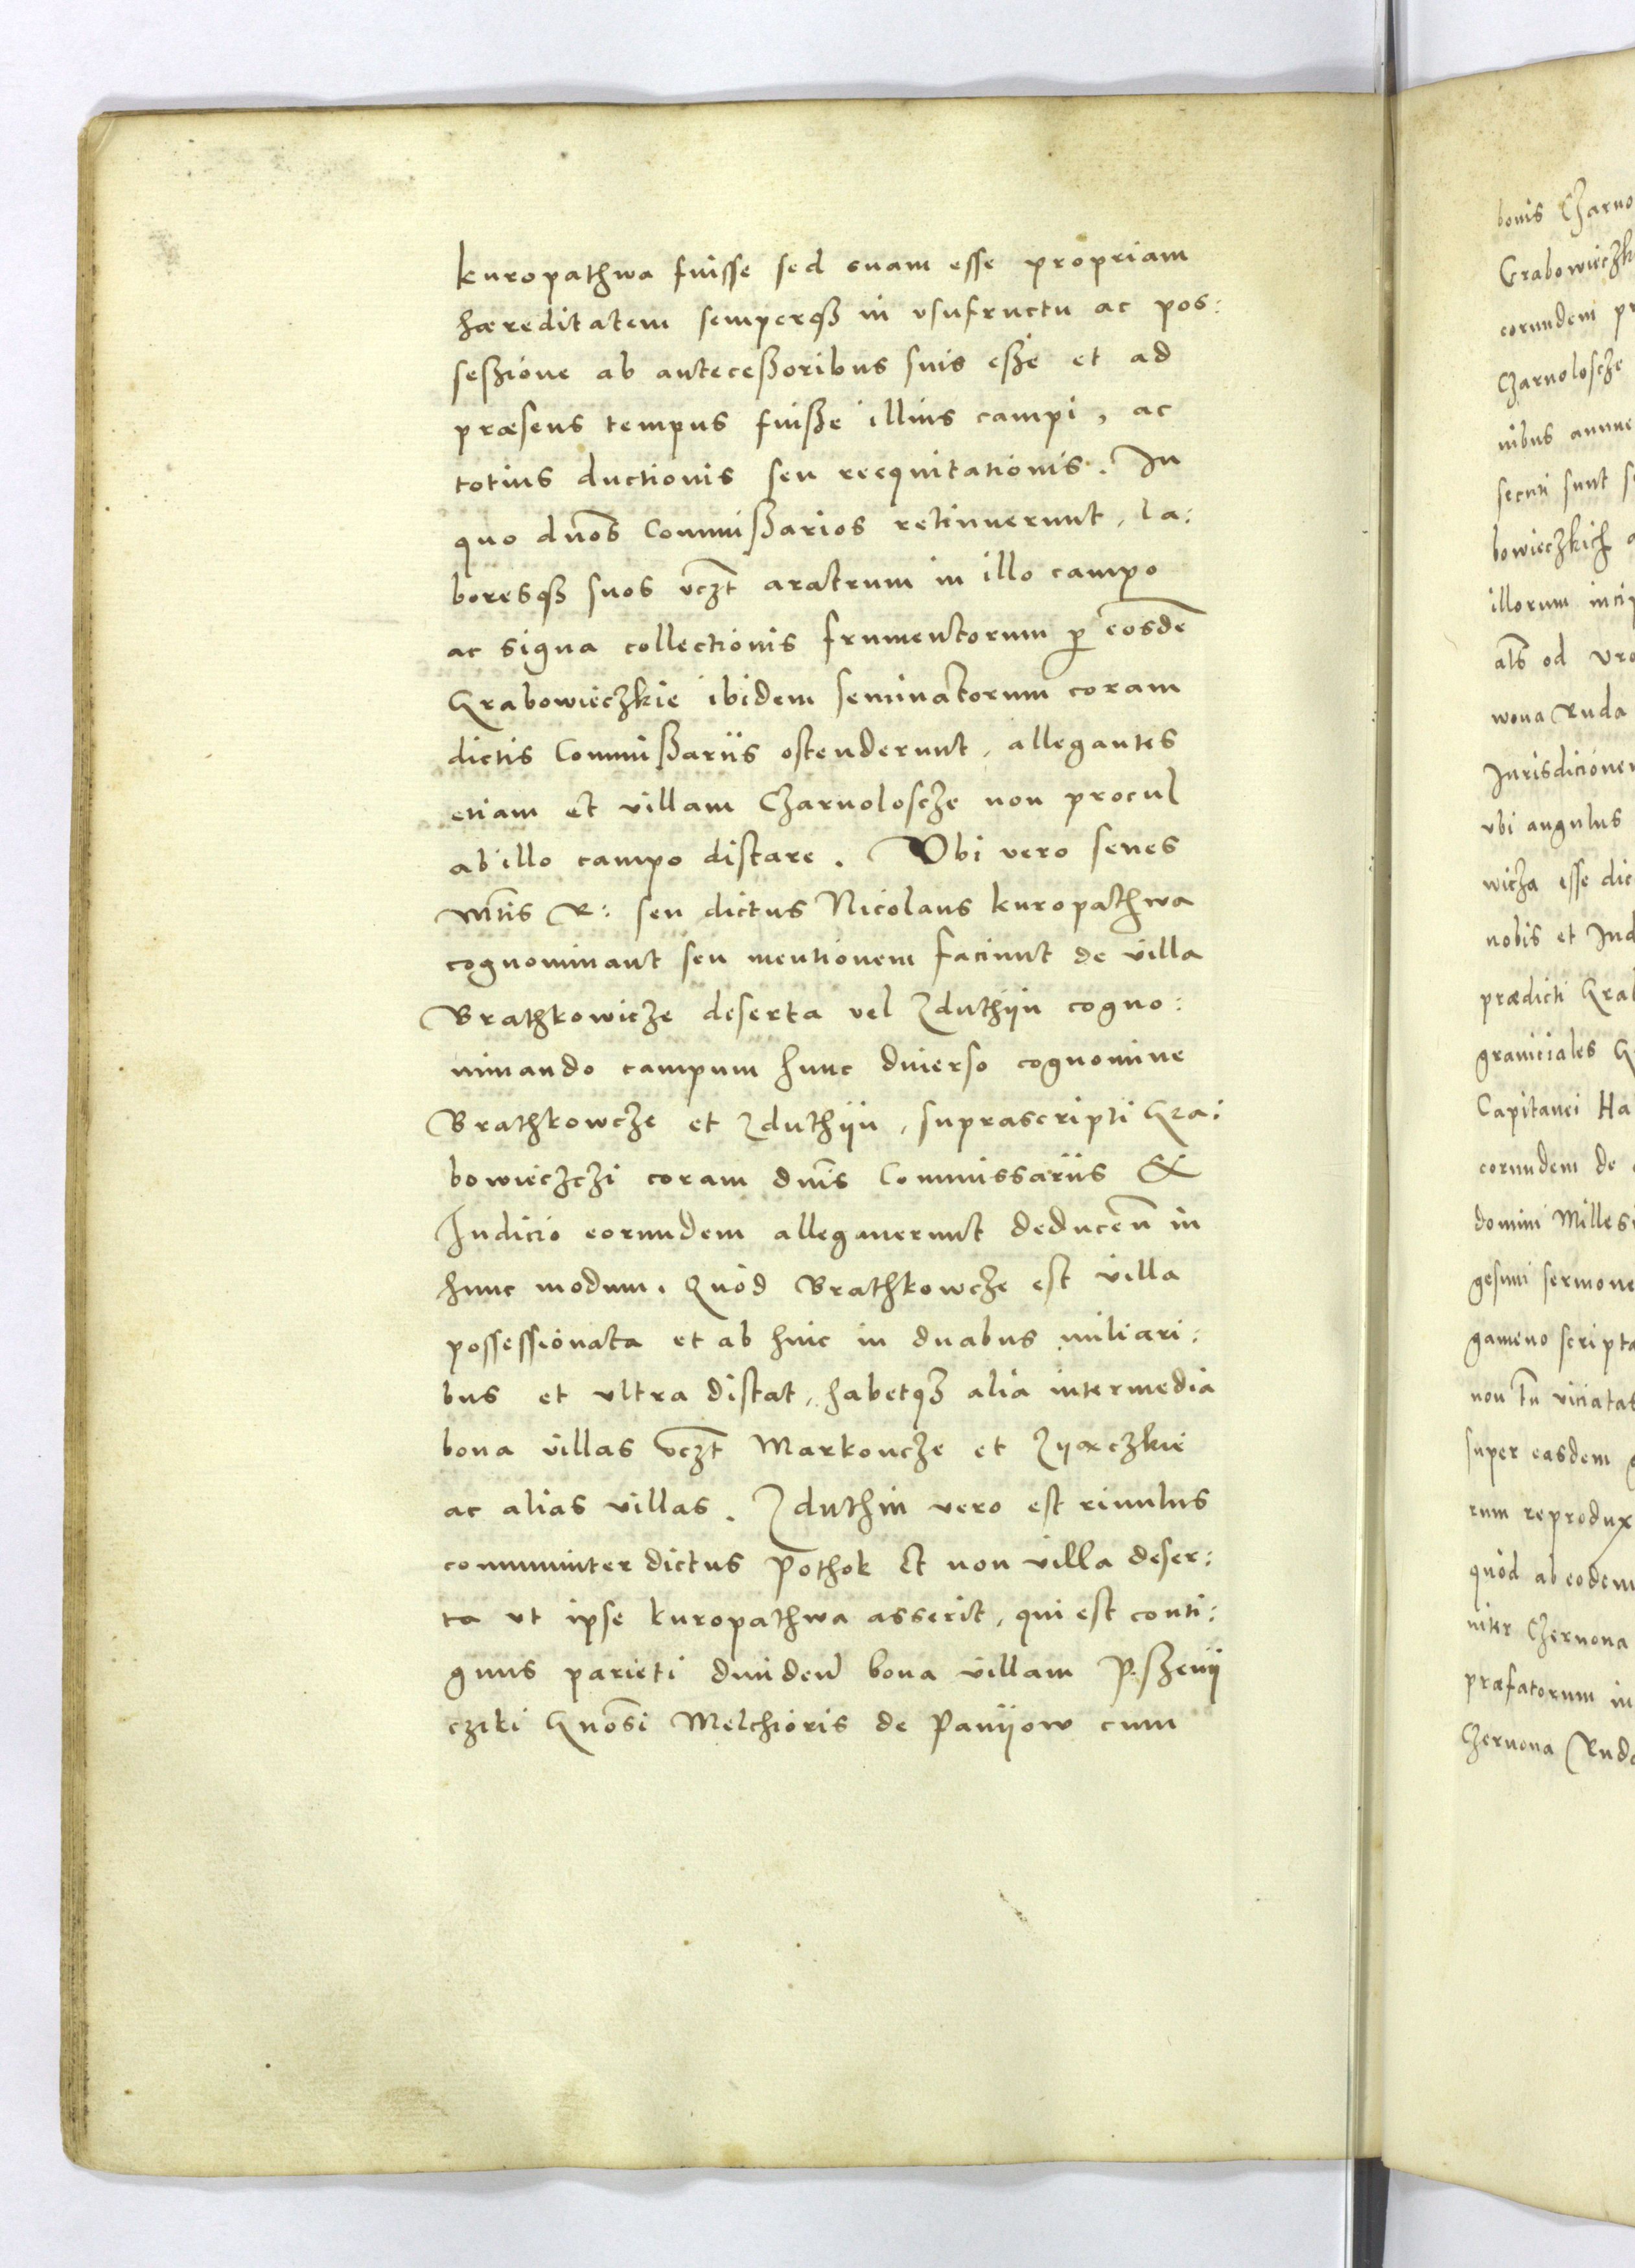 kuropathwa fuisse sed suam esse propriam
hæreditatem semperqȝ in vsufructu ac pos:
seßione ab anteceßoribus suis eße et ad
præsens tempus fuiße illius campi, ac
totius ductionis seu reequitationis. In
quo dnōs Commißarios retinuerunt, la:
boresqȝ suos vczt aratrum in illo campo
ac signa collectionis frumentorum p̱ eosdē
Grabowieczkie ibidem seminatorum coram
dictis Commißariis ostenderunt, allegantes
etiam et villam Czarnoloscze non procul
ab illo campo distare. Vbi vero senes
Mtis R: seu dictus Nicolaus kuropathwa
cognominant seu mentionem faciunt de villa
Brathkowicze deserta vel Zduthÿn cogno:
minando campum hunc diuerso cognomine
Brathkowcze et Zduthÿn, suprascripti Gra:
bowieczczi coram dnis Commissariis &
Iudicio eorundem allegauerunt deducen̄ in
hunc modum. Quòd Brathkowcze est villa
possessionata et ab hinc in duabus miliari:
bus et vltra distat, habetqȝ alia intermedia
bona villas vczt Markoucze et Zÿrczkie
ac alias villas. Zduthin vero est riuulus
communiter dictus Pothok et non villa deser:
ta vt ipse kuropathwa asserit, qui est conti:
guus parieti diuiden̄ bona villam P.szenÿ
cziki Gnōsi Melchioris de Panÿow cum
bonis Czarno
Grabowieczk
eorundem pr
Czarnoloscze
nibus annue
secuti sunt s
bowieczkich a
illorum inci
als od vro
wona Ruda
Iurisdicionem
vbi angulus
wicza esse dic
nobis et Iud
prædicti Grab
graniciales G
Capitanei Ha
eorundem de
domini Milles
gesimi sermone
gameno scripta
non tn̄ viciatas
super easdem
rum reprodux
quòd ab eodem
niter Czernona
præfatorum in
Czernona Ruda